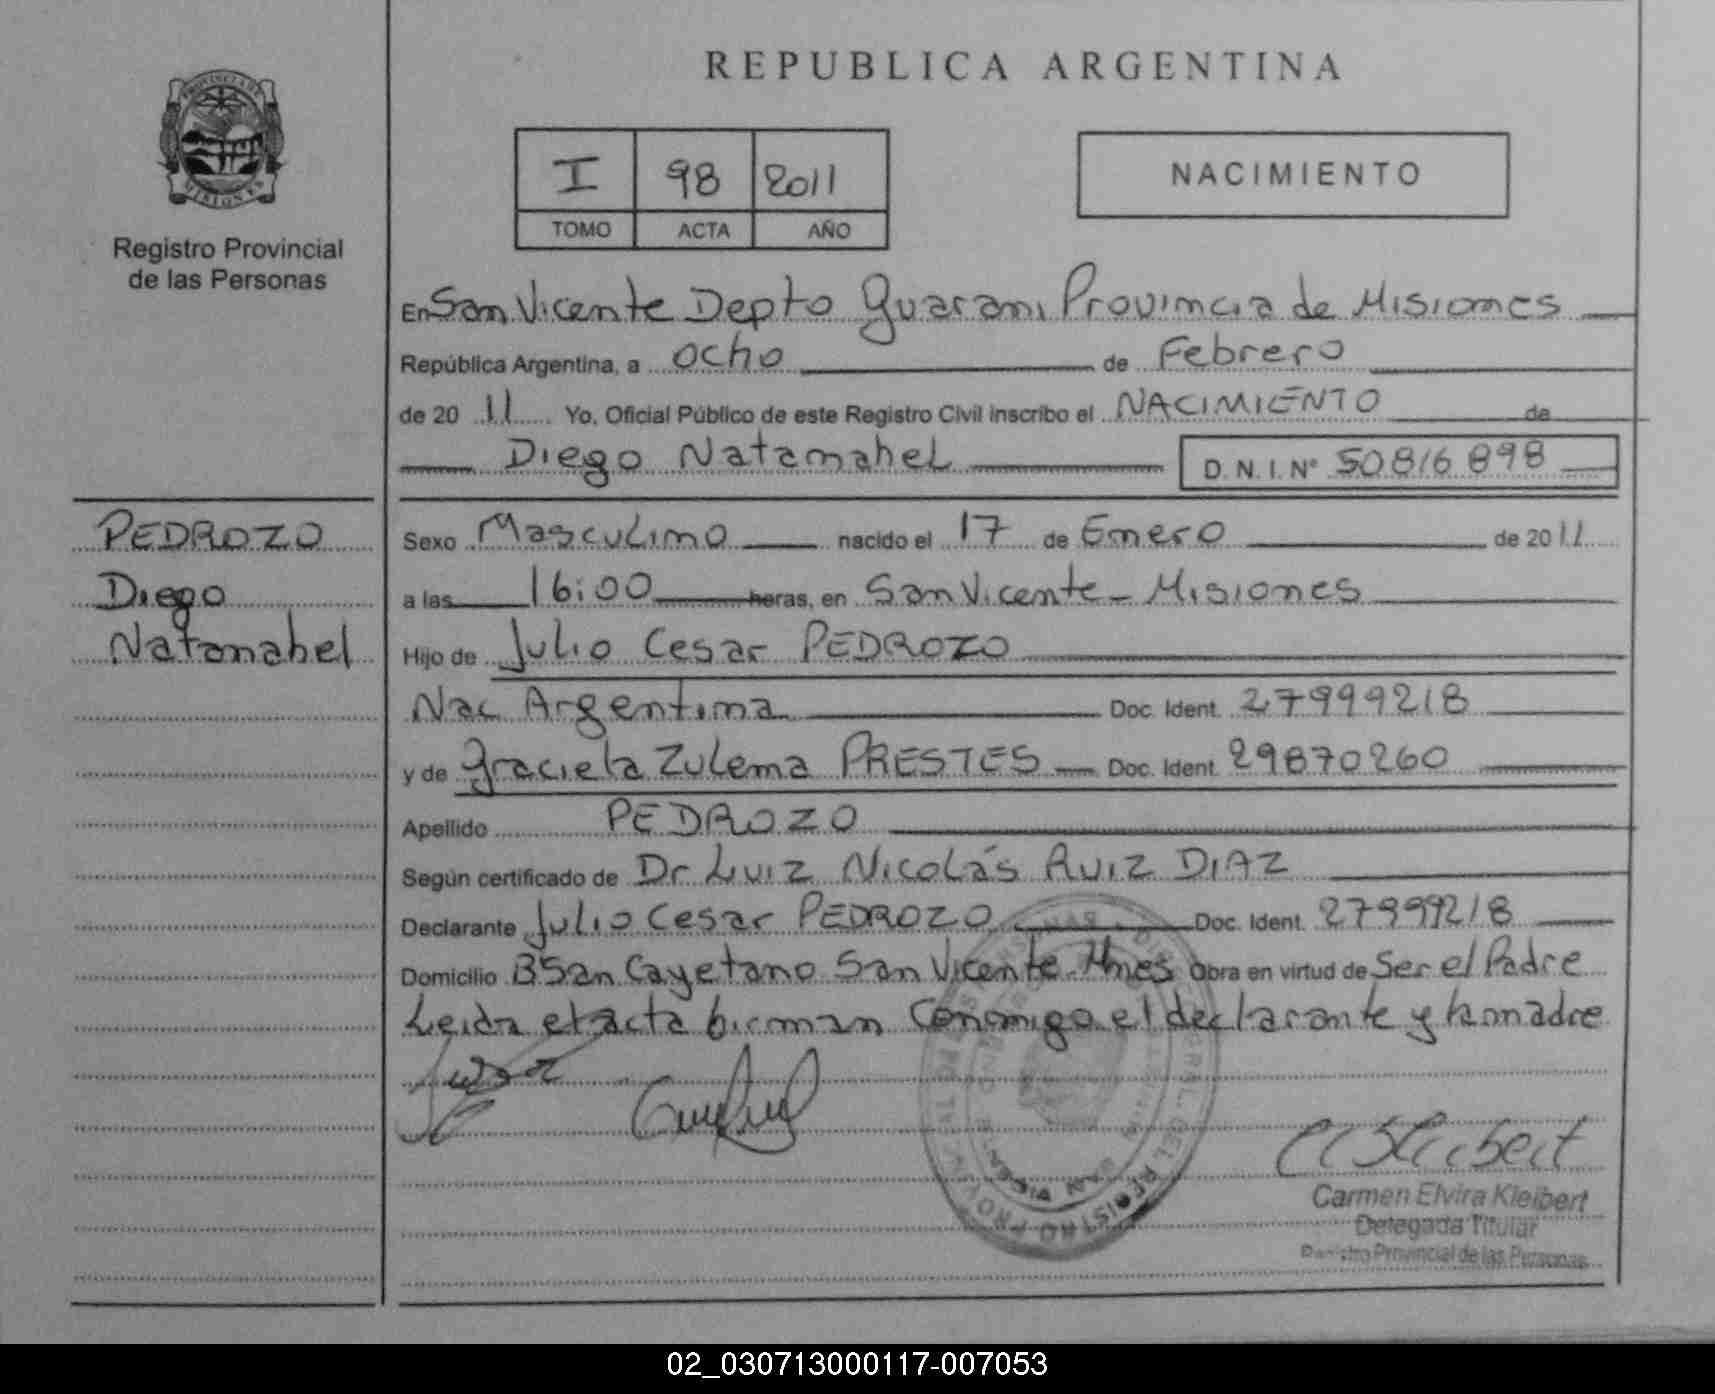 REPUBLICA ARGENTINA
PROVINCIA DE
MISIONES
Registro Provincial
de las Personas
I 98 2011
TOMO ACTA AÑO
NACIMIENTO
En San Vicente Depto Guarani Provincia de Misiones
República Argentina, a ocho de Febrero
de 20 11 Yo, Oficial Público de este Registro Civil inscribo el NACIMIENTO de
Diego Natanahel D.N.I.Nº 50.816.898
PEDROZO
Diego
Natanahel
Sexo Masculino nacido el 17 de Enero de 2011
a las 16:00 horas, en San Vicente - Misiones
Hijo de Julio Cesar PEDROZO
Nac Argentina Doc. Ident. 27999218
y de Graciela Zulema PRESTES Doc. Ident. 29870260
Apellido PEDROZO
Según certificado de Dr Luiz Nicolás RUIZ DIAZ
Declarante Julio Cesar PEDROZO Doc. Ident. 27999218
Domicilio B San Cayetano San Vicente - Mnes Obra en virtud de Ser el Padre
Leida el acta firman Conmigo el declarante y la madre
Carmen Elvira Kleibert
Delegada Titular
Registro Provincial de las Personas
02_030713000117-007053